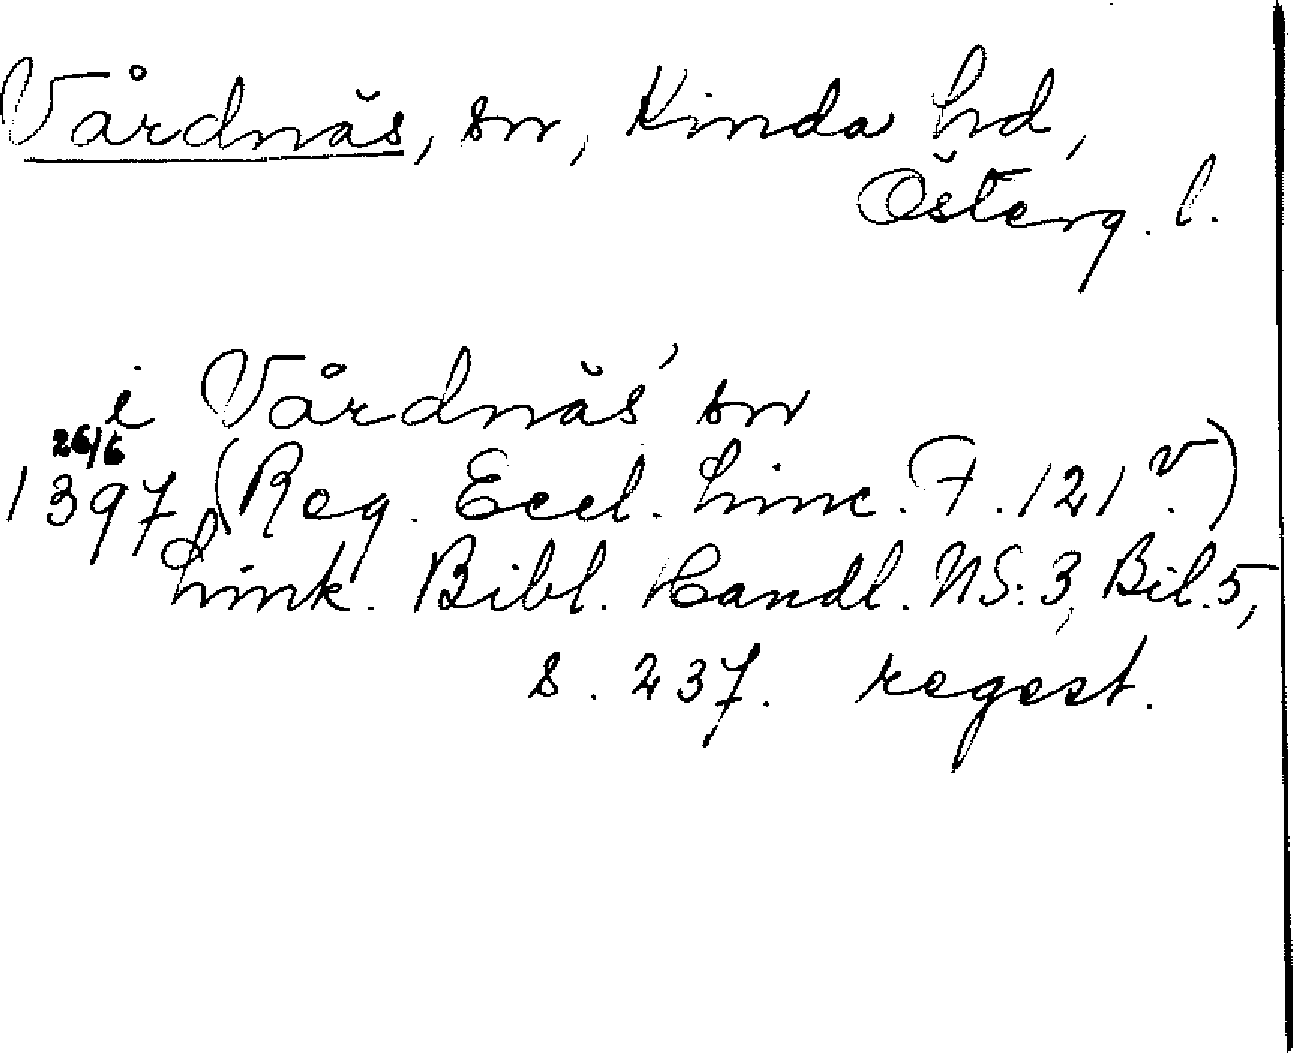 Vårdnäs, sn, Kinda hd,
Österg. l.
i Vårdnäs' sn
26/6
1397 (Reg. Eccl. Linc. F. 121 v.)
Link. Bibl. Handl. NS: 3, Bil. 5,
s. 237. regest.